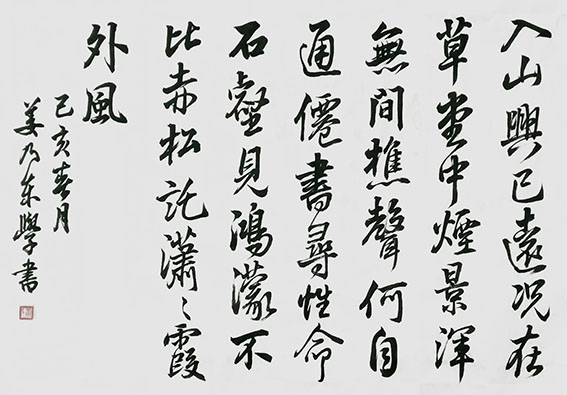 入山興已遠況在
草堂中煙景渾
無間樵聲何自
通僊書尋性命
石壑見鴻濛不
比赤松託瀟〻霞
外風
己亥春月
姜乃東學書